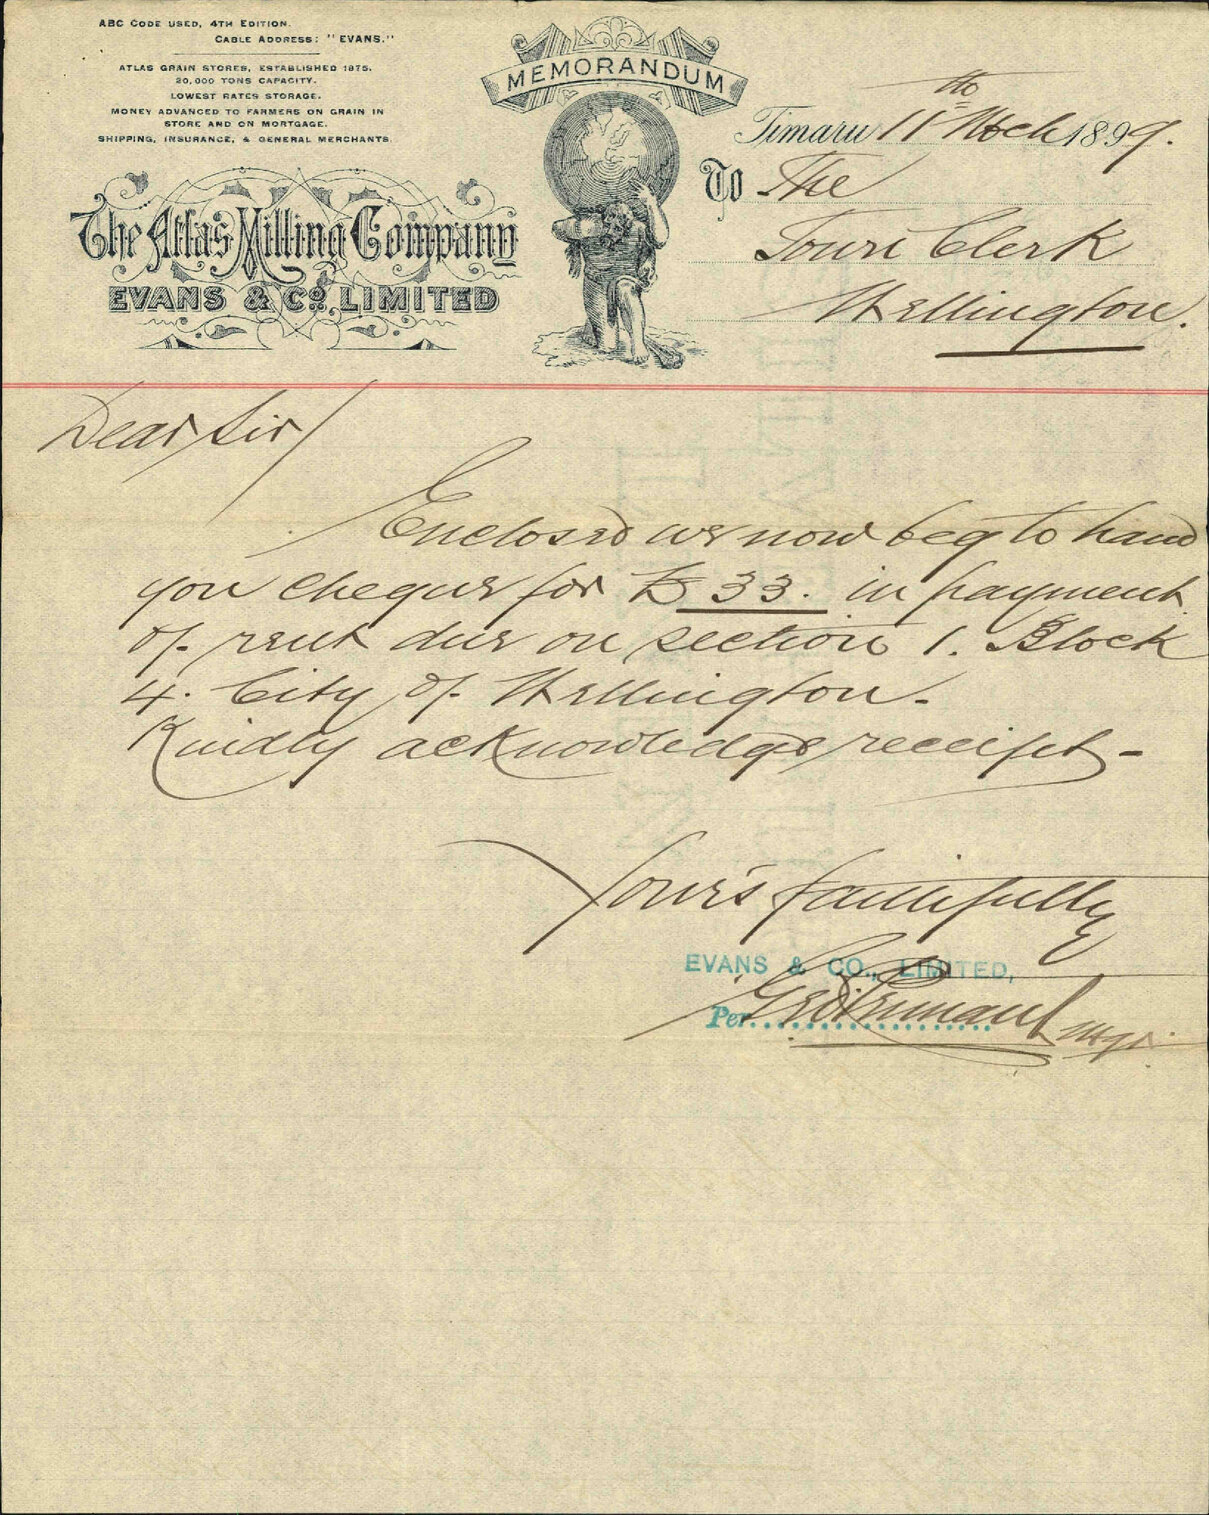 ABC CODE USED, 4TH EDITION.
CABLE ADDRESS: "EVANS."
ATLAS GRAIN STORES, ESTABLISHED 1875.
20,000 TONS CAPACITY.
LOWEST RATES STORAGE.
MONEY ADVANCED TO FARMERS ON GRAIN IN
STORE AND ON MORTGAGE.
SHIPPING, INSURANCE, & GENERAL MERCHANTS.
The Atlas Milling Company
EVANS & Co. LIMITED
MEMORANDUM
Timaru 11th Mch 1899.
To The
Town Clerk
Wellington.
Dear Sir/
Enclosed we now beg to hand
you cheque for £33. in payment
of rent due on section 1. Block
4. City of Wellington.
Kindly acknowledge receipt -
Your's faithfully
EVANS & CO., LIMITED,
Per